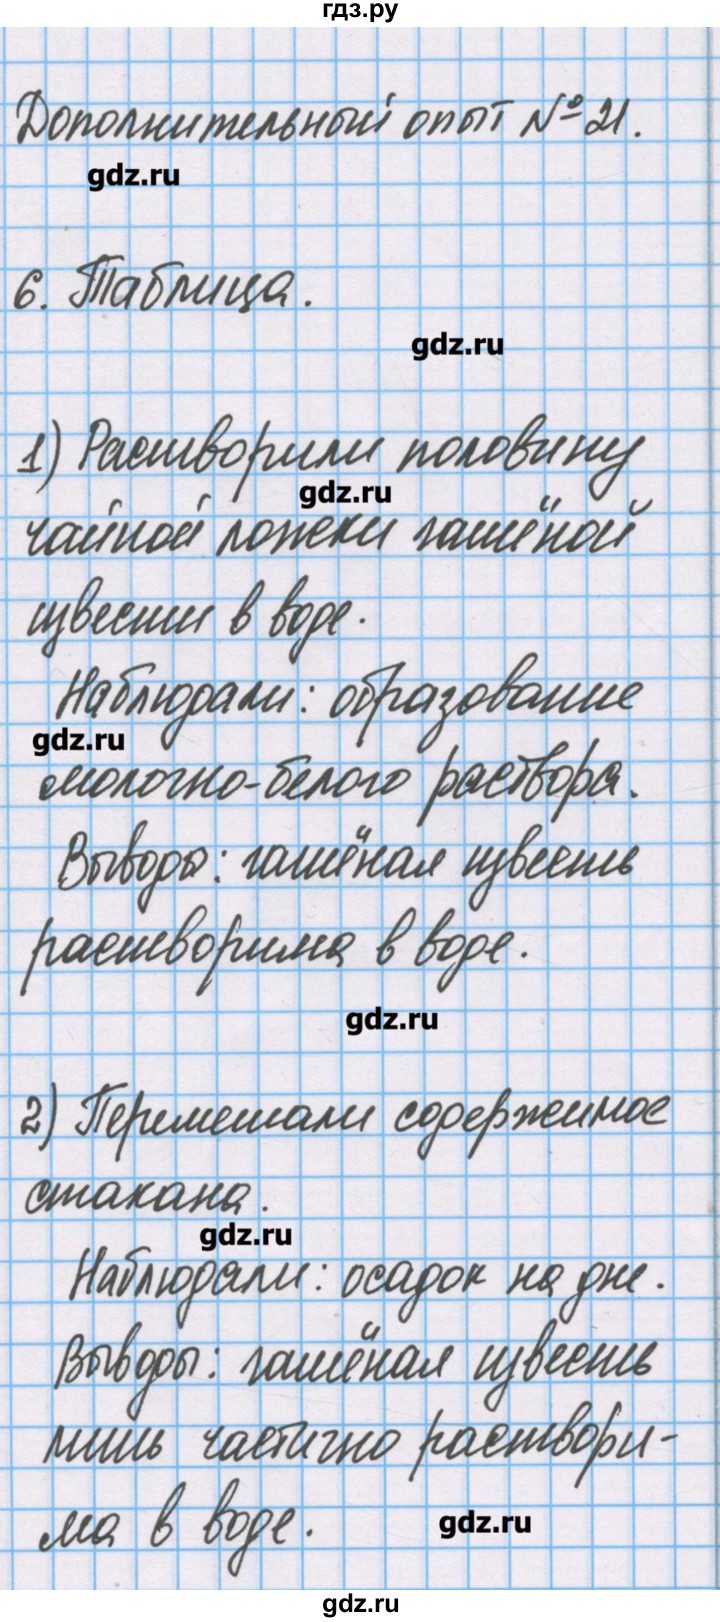 гдз.ру
Дополнительный опыт №21.
gdz.ru
6. Таблица.
gdz.ru
1) Растворили половину
gdz.ru
чайной ложки гашёной
извести в воде.
Наблюдали: образование
gdz.ru
молочно-белого раствора.
Выводы: гашёная известь
растворима в воде.
gdz.ru
2) Перемешали содержимое
стакана.
gdz.ru
Наблюдали: осадок на дне.
Выводы: гашёная известь
лишь частично раствори-
ма в воде.
gdz.ru
gdz.ru